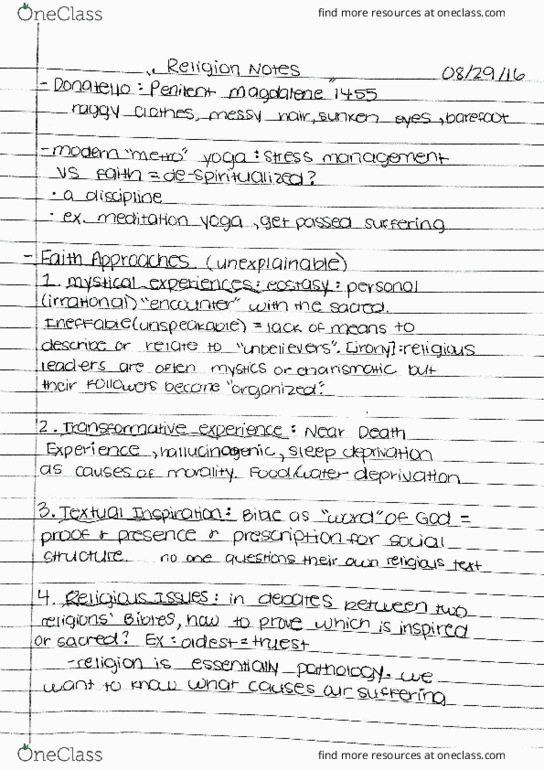 OneClass
find more resources at oneclass.com
Religion Notes 08/29/16
- Donatello: Penitent Magdalene 1455
raggy clothes, messy hair, sunken eyes, barefoot
- modern "metro" yoga: stress management
vs faith = de-spiritualized?
· a discipline
· ex. meditation yoga, get passed suffering
- Faith Approaches (unexplainable)
1. mystical experiences: ecstasy: personal
(irrational) "encounter" with the sacred.
Ineffable (unspeakable) = lack of means to
describe or relate to "unbelievers". [irony]: religious
leaders are often mystics or charismatic but
their followers become "organized".
2. Transformative experience: Near Death
Experience, hallucinagenic, sleep deprivation
as causes of morality. Food/water deprivation
3. Textual Inspiration: Bible as "word" of God =
proof & presence & prescription for social
structure. no one questions their own religious text
4. Religious Issues: in debates between two
religions' Bibles, how to prove which is inspired
or sacred? Ex: oldest = truest
- religion is essentially pathology. we
want to know what causes our suffering
OneClass
find more resources at oneclass.com